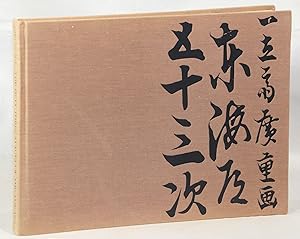 一立斎廣重画
东海道
五十三次